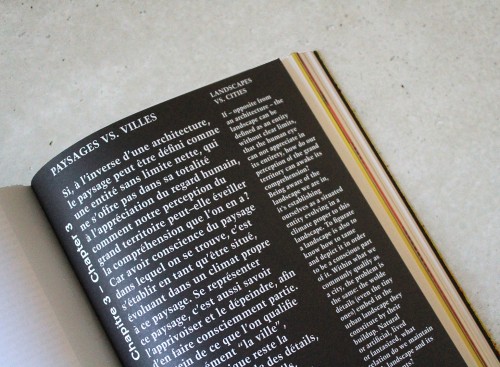 PAYSAGES VS. VILLES
Si, à l'inverse d'une architecture,
le paysage peut être défini comme
une entité sans limite nette, qui
ne s'offre pas dans sa totalité
à l'appréciation du regard humain,
comment notre perception du
grand territoire peut-elle éveiller
la compréhension que l'on en a ?
Car avoir conscience du paysage
dans lequel on se trouve, c'est
s'établir en tant qu'être situé,
évoluant dans un climat propre
à ce paysage. Se représenter
ce paysage, c'est aussi savoir
l'apprivoiser et le dépeindre, afin
d'en faire consciemment partie.
sein de ce que l'on qualifie
ément "la ville",
ique reste la
de des détails,
Chapitre 3 Chapter 3
LANDSCAPES
VS. CITIES
If – opposite from
an architecture – the
landscape can be
defined as an entity
without clear limits,
that the human eye
can not appreciate in
its entirety, how do our
perception of the grand
territory can awake its
comprehension?
Being aware of the
landscape we are in,
it's establishing
ourselves as a situated
entity evolving in a
climate proper to this
landscape. To figurate
a landscape is also to
know how to tame
and depict it in order
to be conscious part
of it. Within what we
constantly qualify as
a city, the problem is
the same: the wide
details (even the tiny
ones) embed in the
urban landscape they
constitute by their
buildup. Natural
or artificial, lived
or fantasized, what
relation do we maintain
landscape and its